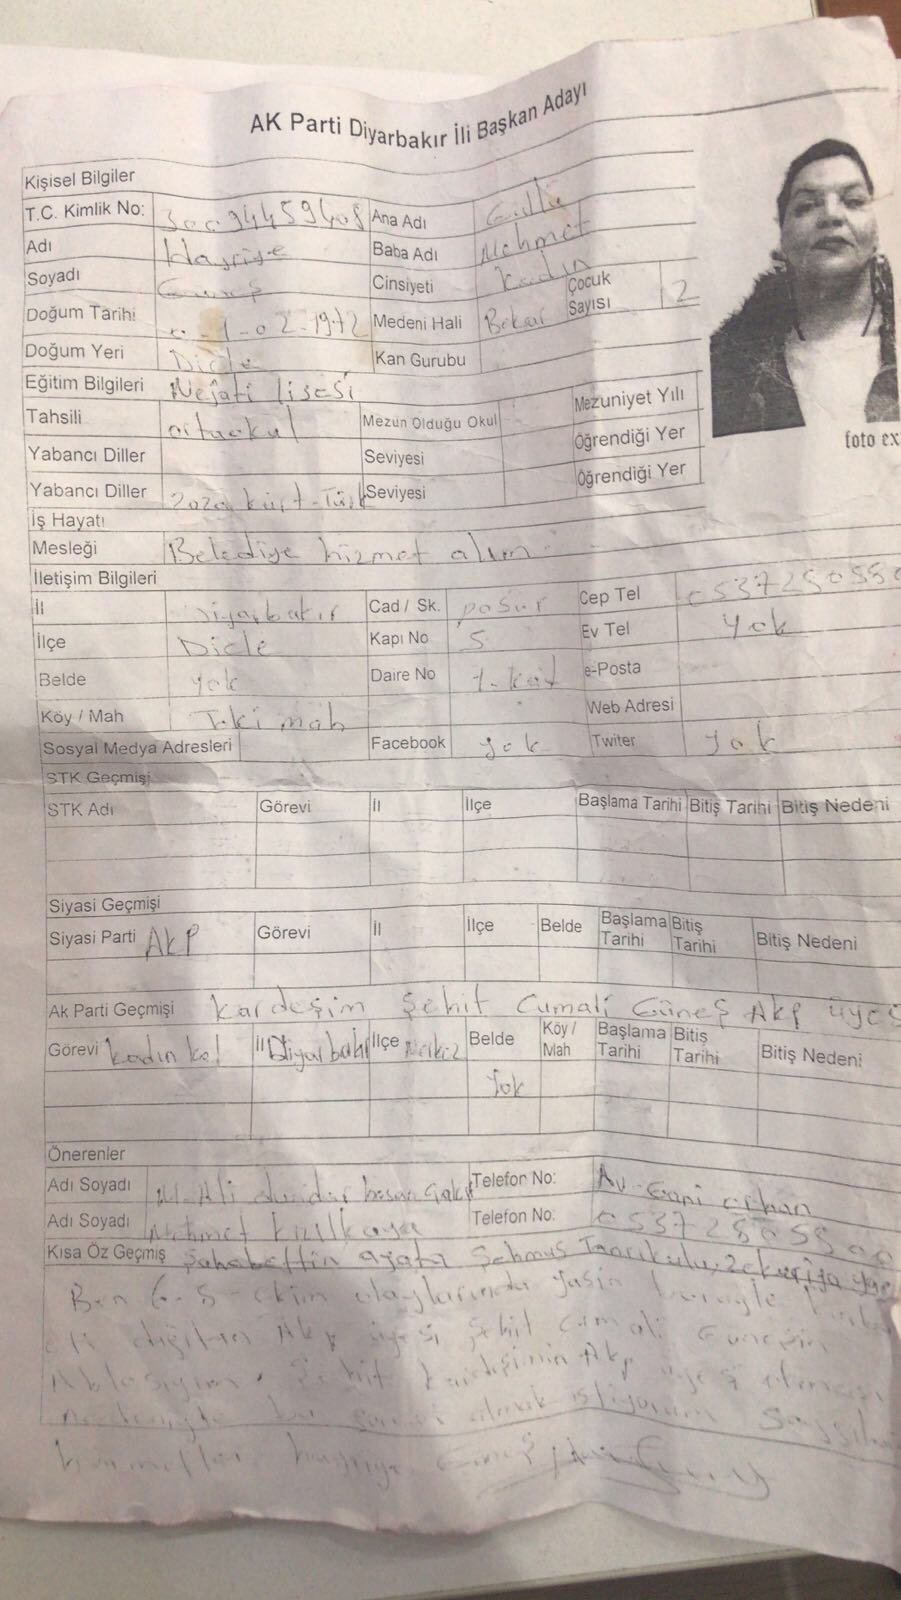 AK Parti Diyarbakır İli Başkan Adayı
Kişisel Bilgiler
T.C. Kimlik No: 30094459408 Ana Adı Güllü
Adı Hayriye Baba Adı Mehmet
Soyadı Güneş Cinsiyeti Kadın Çocuk Sayısı 2
Doğum Tarihi 1-02-1972 Medeni Hali Bekar
Doğum Yeri Dicle Kan Gurubu
foto ex
Eğitim Bilgileri Nejati lisesi
Tahsili ortaokul Mezun Olduğu Okul Mezuniyet Yılı
Yabancı Diller Seviyesi Öğrendiği Yer
Yabancı Diller zaza kürt-Türk Seviyesi Öğrendiği Yer
İş Hayatı
Mesleği Belediye hizmet alım
İletişim Bilgileri
İl Diyarbakır Cad / Sk. pasur Cep Tel
İlçe Dicle Kapı No 5 Ev Tel Yok
Belde yok Daire No 1-kat e-Posta
Köy / Mah Toki mah Web Adresi
Sosyal Medya Adresleri Facebook yok Twiter yok
STK Geçmişi
STK Adı Görevi İl İlçe Başlama Tarihi Bitiş Tarihi Bitiş Nedeni
Siyasi Geçmişi
Siyasi Parti AKP Görevi İl İlçe Belde Başlama Tarihi Bitiş Tarihi Bitiş Nedeni
Ak Parti Geçmişi Kardeşim Şehit Cumali Güneş Akp üyes
Görevi kadın kol İl Diyarbakır İlçe Merkez Belde Köy / Mah Başlama Tarihi Bitiş Tarihi Bitiş Nedeni
Yok
Önerenler
Adı Soyadı M. Ali dündar Telefon No: Av-Gani orhan
Adı Soyadı Mehmet Kızılkaya Telefon No:
Kısa Öz Geçmiş Şahabettin Şehmus Tanrıkulu,
Ben 6-8-ekim olaylarında yasin
Akp üyesi şehit cumali Güneşin
Ablasıyım. Şehit kardeşimin Akp üyesi olması
nedeniyle bu olmak istiyorum
hürmetler hayriye Güneş